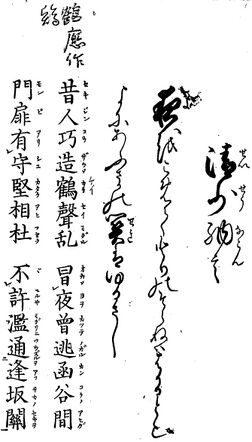 清少納言
夜をこめてとりのそらねははかるとも
よにあふさかの関はゆるさし
鶴應作
昔人巧造鶴聲乱　冒夜曾逃函谷間
門扉有守堅相杜　不許濫通逢坂關